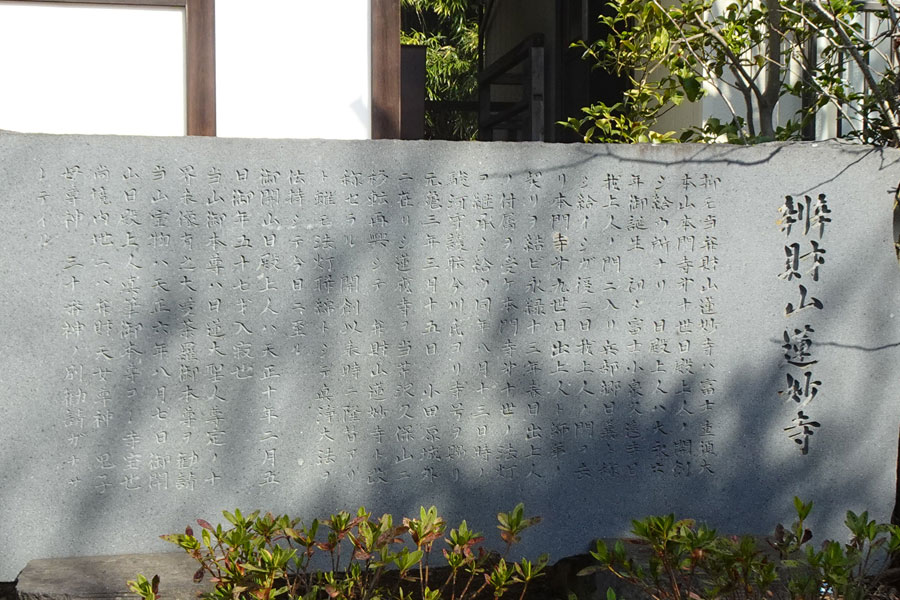 辨財山蓮妙寺
抑モ当弁財山蓮妙寺ハ富士重須大
本山本門寺第十世日殿上人ノ開創
シ給ウ所ナリ 日殿上人ハ大永六
年御誕生 初メ富士小泉久遠寺日
我上人ノ門ニ入リ兵部卿日義ト称
シ給イシガ後ニ日我上人ノ門ヲ去
リ本門寺第九世日出上人ト師弟ノ
契リヲ結ビ永禄十二年春日出上人
ノ付属ヲ受ケ本門寺第十世ノ法灯
ヲ継承シ給ウ同年八月十三日時ノ
駿河守護職今川氏ヨリ寺号ヲ賜リ
元亀三年三月十五日 小田原城外
ニ在リシ蓮 寺ヲ 当荻窪久保山ニ
移転再興シテ 弁財山蓮妙寺ト改
称セラル 開創以来時ニ隆替アリ
ト雖モ法灯聯綿トシテ真浄大法ヲ
法持シテ今日ニ至ル
御開山日殿上人ハ天正十年二月五
日御年五十七才入寂也
当山御本尊ハ日蓮大聖人奠定ノ十
界本懐之大曼荼羅御本尊ヲ勧請
当山霊物ハ天正六年八月七日御開
山日殿上人真筆御本尊ヲ 寺宝也
尚境内地ニハ弁財 天女尊神 鬼子
母尊神 三十番神ノ別勧請ガナサ
レテイル